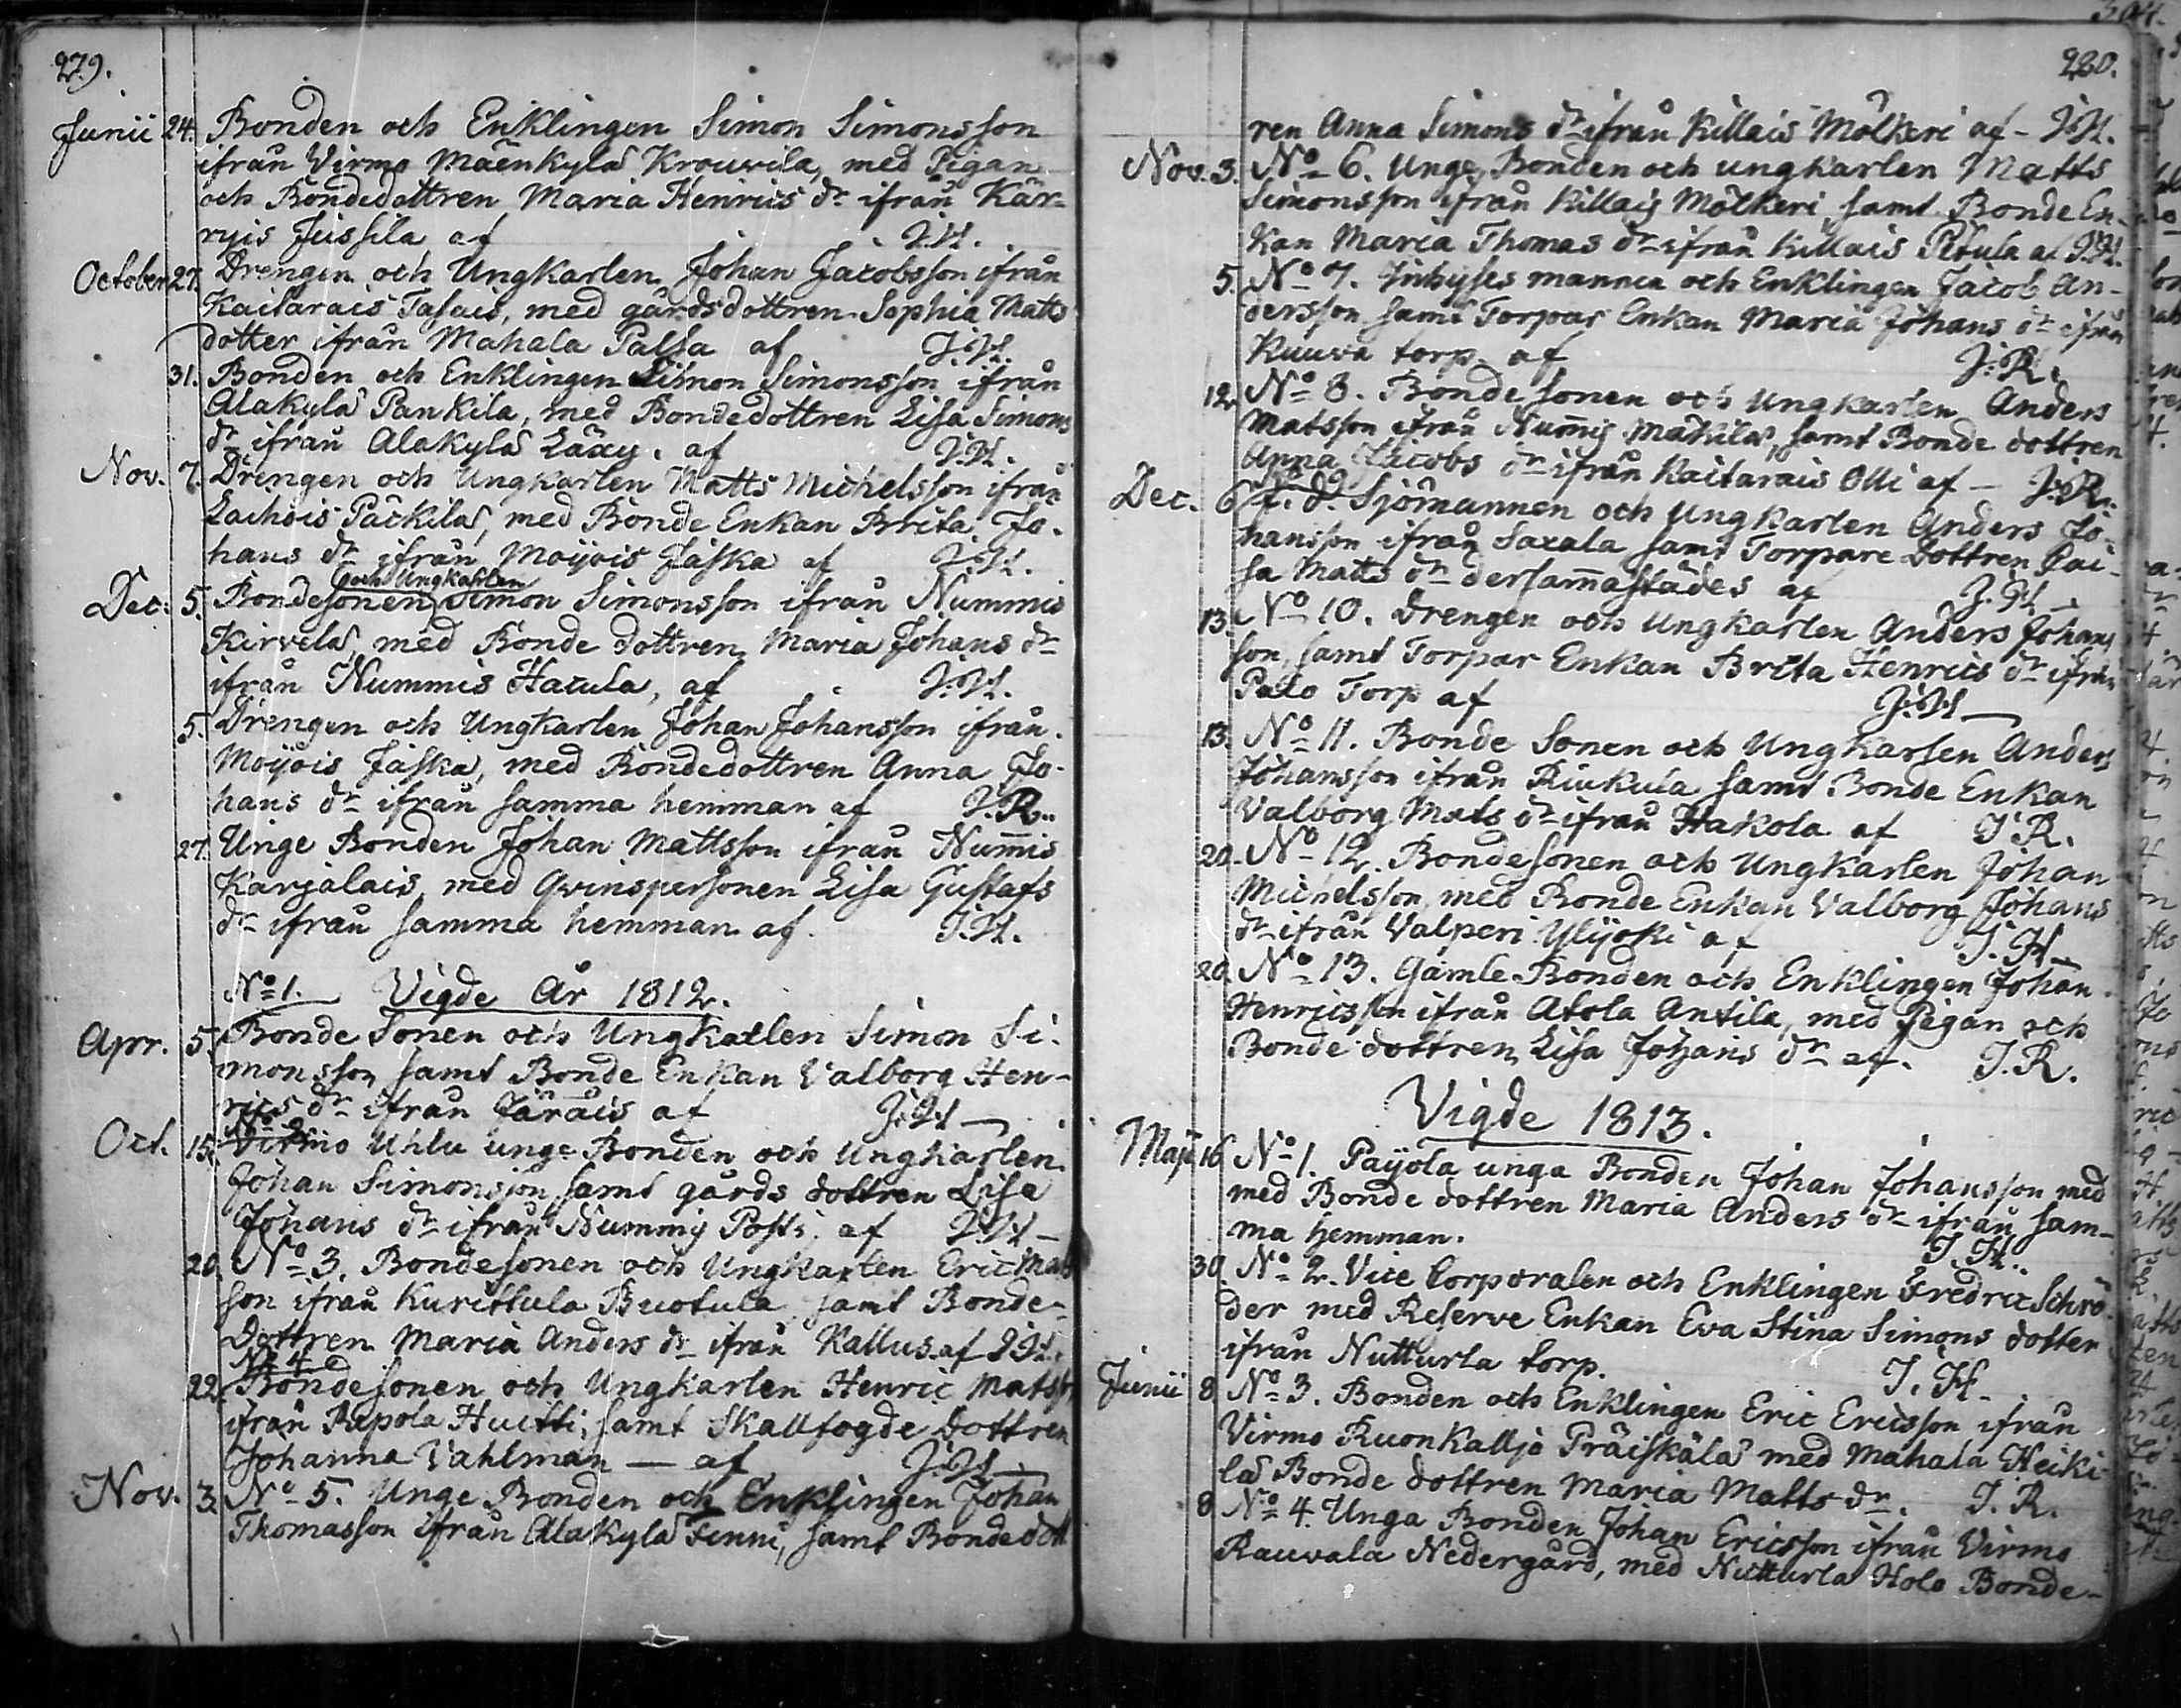 279.
Junii 24. Bonden och Enklingen Simon Simonsson
ifrån Virmo Mäenkylä Krouvila, med Pigan
och Bondedottren Maria Henrics dr ifrån Kär-
ryis Jussila af J.H.
October 27. Drengen och Ungkarlen Johan Jacobsson ifrån
Kaitarais Tasais, med gårdsdottren Sophia Matts
dotter ifrån Mahala Palsa af J.H.
31. Bonden och Enklingen Simon Simonsson ifrån
Alakylä Pankila, med Bondedottren Lisa Simons
dr ifrån Alakylä Läxy. af J.H.
Nov. 7. Drengen och Ungkarlen Matts Michelsson ifrån
Laihois Päckilä, med Bonde Enkan Brita Jo-
hans dr ifrån Moijois Jaska af J.H.
och Ungkarlen
Dec: 5. Bondesonen Simon Simonsson ifrån Nummis
Kirvelä, med Bonde dottren Maria Johans dr
ifrån Nummis Hacula, af J.H.
5. Drengen och Ungkarlen Johan Johansson ifrån
Moijois Jaska, med Bondedottren Anna Jo-
hans dr ifrån samma hemman af J.R.
27. Unge Bonden Johan Mattsson ifrån Num̄is
Karjalais, med Qvinspersonen Lisa Gustafs
dr ifrån samma hemman af. J.H.
No 1. Vigde År 1812.
Apr. 5. Bonde Sonen och Ungkarlen Simon Si-
monsson samt Bonde Enkan Valborg Hen-
rics dr ifrån Järäis af J.H
No 2
Oct. 15. Virmo Uhlu unge Bonden och Ungkarlen
Johan Simonsson samt gårds dottren Lisa
Johans dr ifrån Nummis Posti. af J.H
20. No 3. Bondesonen och Ungkarlen Eric Mats
son ifrån Kurittula Buotula samt Bonde-
Dottren Maria Anders dr ifrån Kallus. af J.H.
No 4
22. Bondesonen och Ungkarlen Henric Mats
ifrån Repola Huitti, samt Skallfogde Dottren
Johanna Vahlman — af J:H
Nov. 3. No 5. Unge Bonden och Enklingen Johan
Thomasson ifrån Alakylä Finni, samt Bondedott
280.
ren Anna Simons dr ifrån Killais Mälkeri af - J.H.
Nov. 3. No 6. Unge Bonden och ungkarlen Matts
Simonsson ifrån Killais Mälkeri, samt Bonde En-
kan Maria Thomas dr ifrån Killais Pitula af J.H.
5. No 7. Inhyses mannen och Enklingen Jacob An-
dersson samt Torpar Enkan Maria Johans dr ifrån
Kuuva torp. af J:R.
12. No 8. Bonde sonen och Ungkarlen Anders
Matsson ifrån Num̄is Mäkilä, samt Bonde dottren
Anna Jacobs dr ifrån Kaitarais Olli af — J.R.
No 9
Dec. 6 f. d. Sjömannen och Ungkarlen Anders Jo-
hansson ifrån Saxala samt Torpare Dottren Cai-
sa Matts dr dersam̄astädes af J.H
13. No 10. Drengen och Ungkarlen Anders Johans
son, samt Torpar Enkan Brita Henrics dr ifrån
Palo Torp af J:H
13. No 11. Bonde Sonen och Ungkarlen Anders
Johansson ifrån Riukula samt Bonde Enkan
Valborg Mats dr ifrån Hakola af J.R.
20. No 12. Bondesonen och Ungkarlen Johan
Michelsson, med Bonde Enkan Valborg Johans
dr ifrån Valperi Ylijoki af J.H
20. No 13. Gamle Bonden och Enklingen Johan
Henricsson ifrån Atola Antila, med Pigan och
Bonde dottren Lisa Johans dr af. J.R.
Vigde 1813.
Maji 16 No 1. Payola unga Bonden Johan Johansson med
med Bonde dottren Maria Anders dr ifrån sam-
ma hemman. J.H.
30. No 2. Vice Corporalen och Enklingen Fredric Schrö-
der med Reserve Enkan Eva Stina Simons dotter
ifrån Nutturla torp. J.H.
Junii 8 No 3. Bonden och Enklingen Eric Ericsson ifrån
Virmo Ruonkallio Präiskälä med Mahala Heiki-
lä Bonde dottren Maria Matts dr. J.R.
8 No 4. Unga Bonden Johan Ericsson ifrån Virmo
Rauvala Nedergård, med Nutturla Holo Bonde-